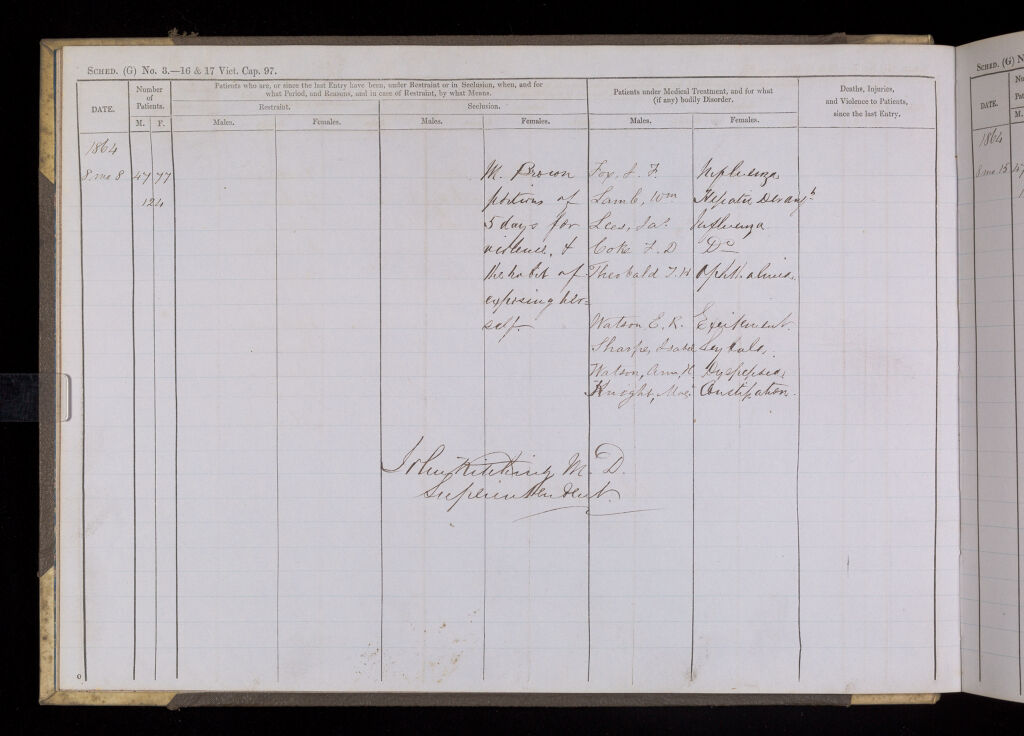 SCHED. (G) No. 3.—16 & 17 Vict. Cap. 97.
DATE.
Number of Patients.
M. F.
Patients who are, or since the last Entry have been, under Restraint or in Seclusion, when, and for
what Period, and Reasons, and in case of Restraint, by what Means.
Restraint.
Seclusion.
Males.
Females.
Males.
Females.
Patients under Medical Treatment, and for what
(if any) bodily Disorder.
Males.
Females.
Deaths, Injuries,
and Violence to Patients,
since the last Entry.
1864
8 mo 8 47 77
124
M. Brown
portions of
5 days for
violence, &
the habit of
exposing her-
self.
Fox, J. F. Influenza
Lamb, Wm Hepatic Derangt
Lees, Jas. Influenza
Coke F. D Do
Theobald T. H Opthalmia.
Watson, E. R. Excitement.
Sharpe, Isabel
Watson, Ann, H. Dyspepsia,
Knight, Mart Constipation.
John Kitching M. D.
Superintendent.
0
SCHED. (G) N
DATE.
Nu
Pat
M.
1864
8 mo 15 47